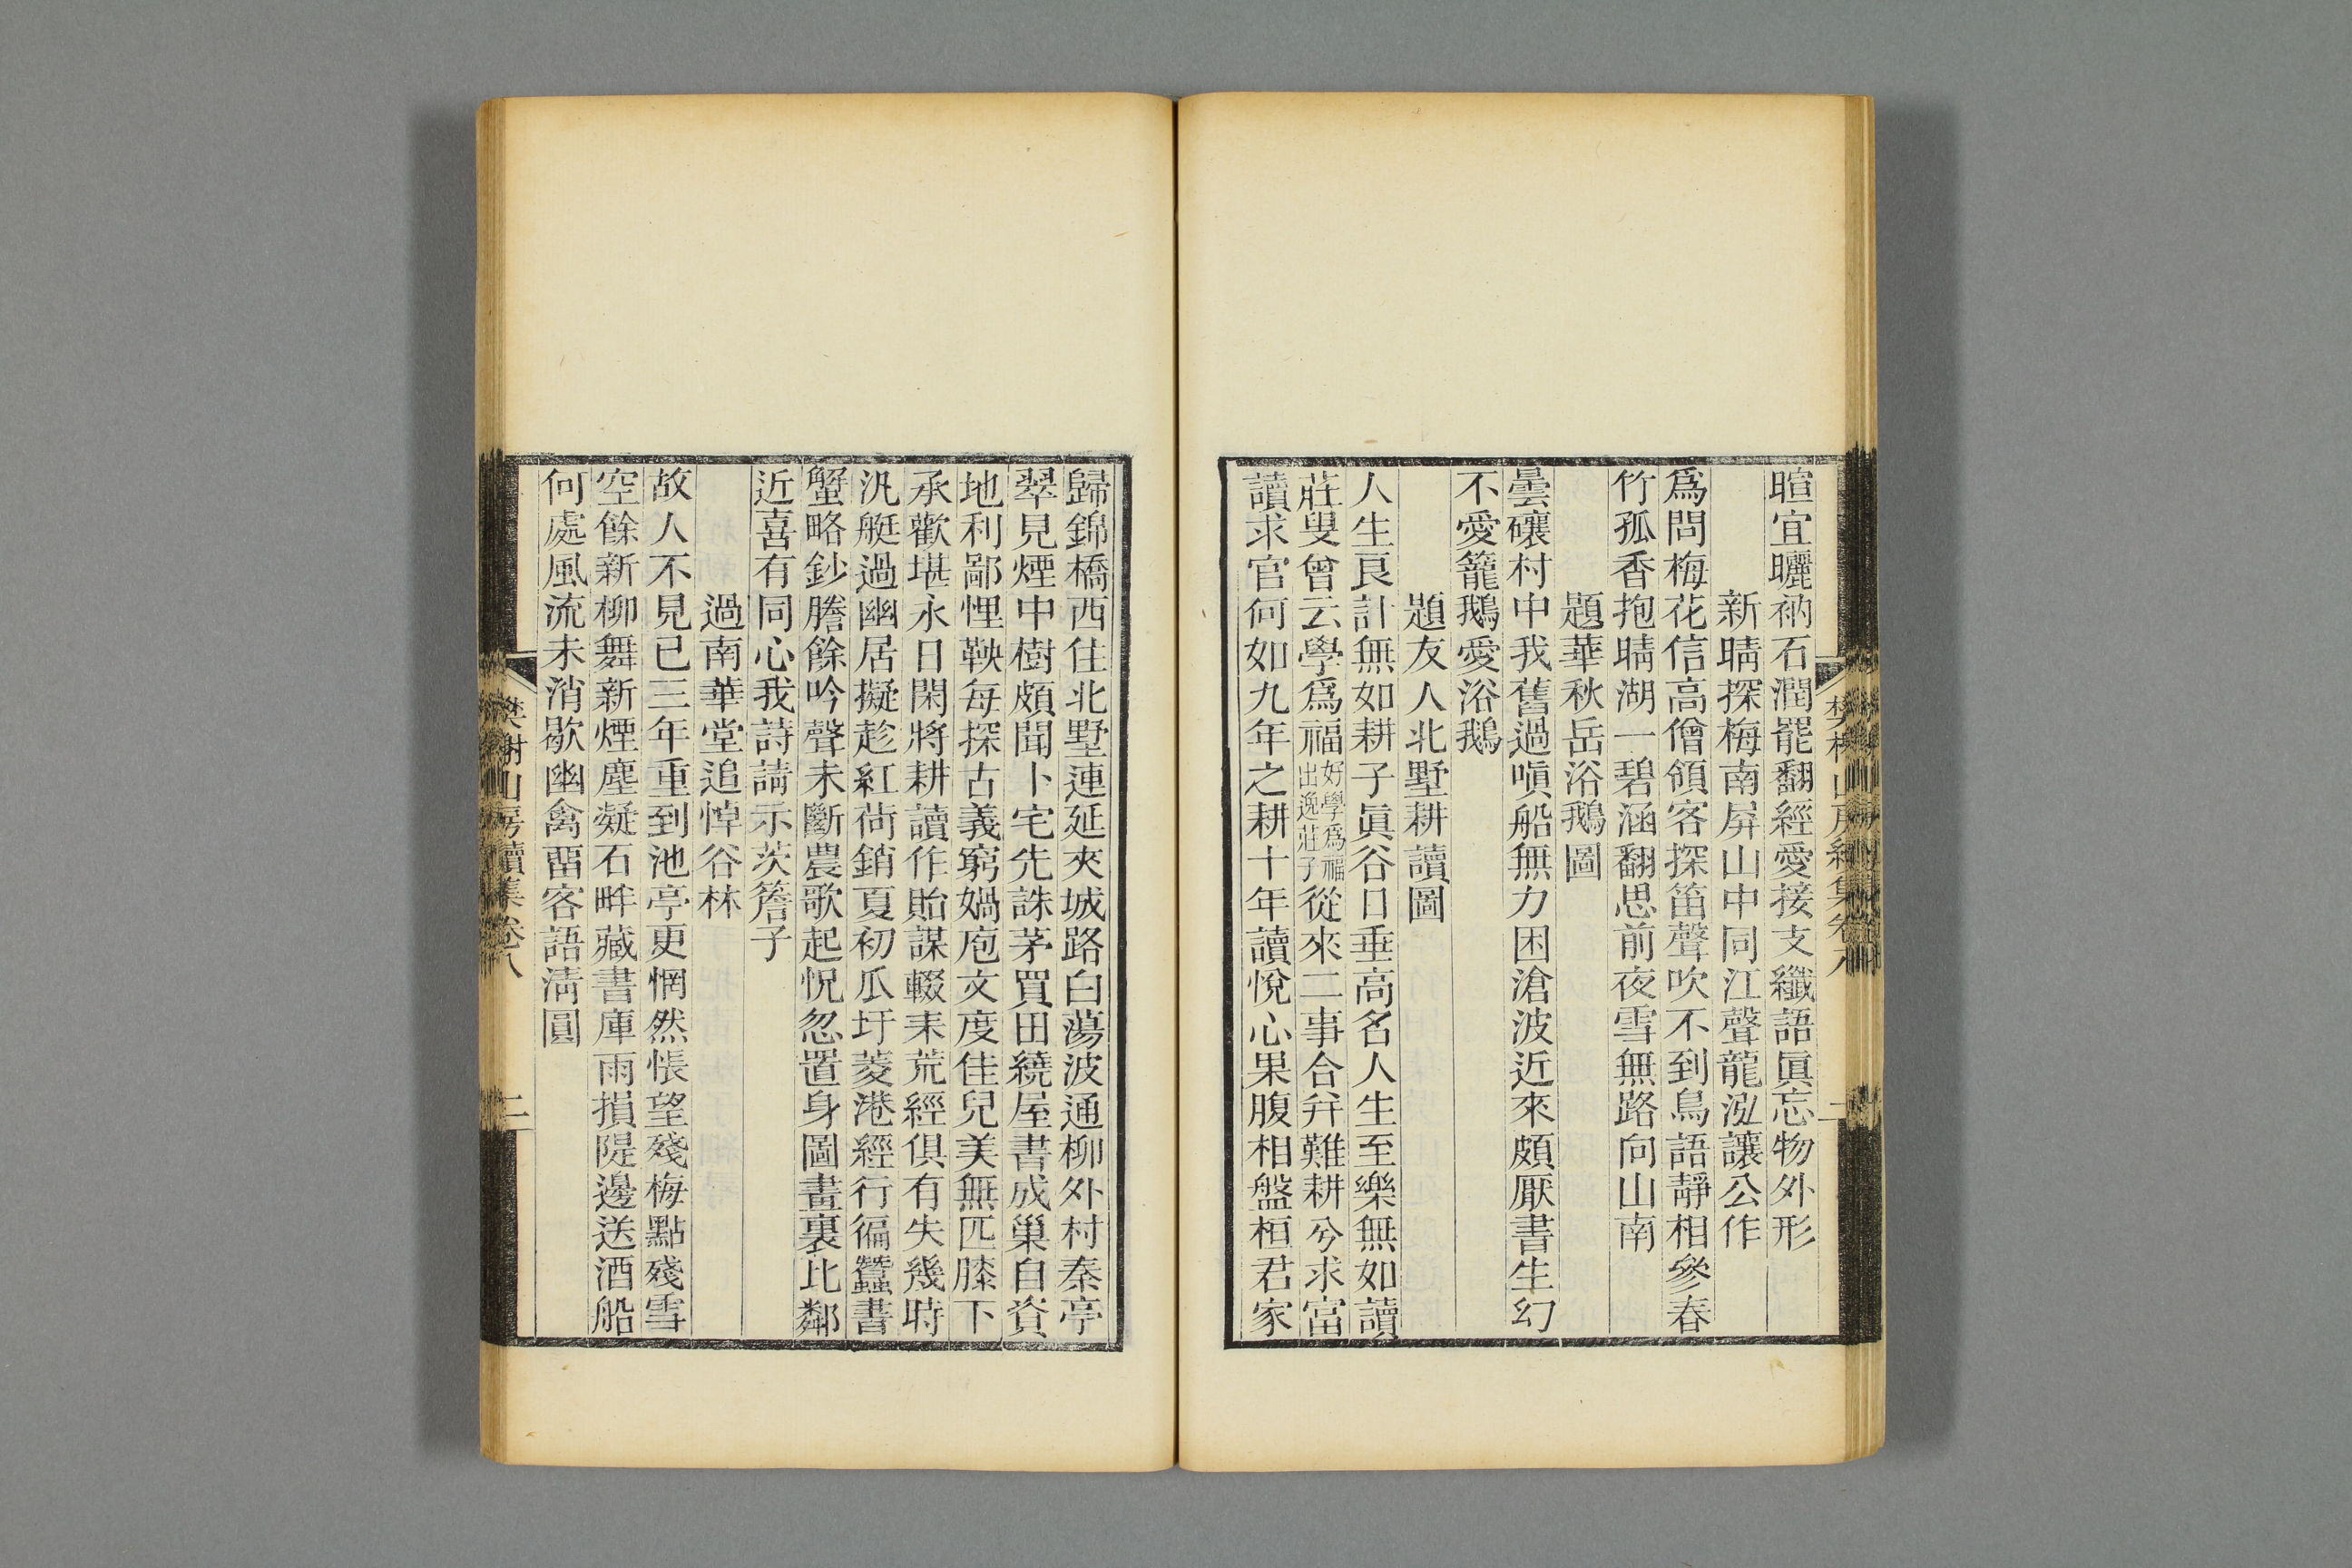 暄宜曬衲石潤罷翻經愛接支纖語眞忘物外形
新晴探梅南屏山中同江聲龍泓讓公作
爲問梅花信高僧領客探笛聲吹不到鳥語靜相參春
竹孤香抱晴湖一碧涵翻思前夜雪無路向山南
題華秋岳浴鵝圖
曇礦村中我舊過嗔船無力困滄波近來頗厭書生幻
不愛籠鵝愛浴鵝
題友人北墅耕讀圖
人生良計無如耕子眞谷口垂高名人生至樂無如讀
莊叟曾云學爲福好學爲福出逸莊子從來二事合幷難耕兮求富
讀求官何如九年之耕十年讀悅心果腹相盤桓君家
歸錦橋西住北墅連延夾城路白蕩波通柳外村秦亭
翠見煙中樹頗聞卜宅先誅茅買田繞屋書成巢自資
地利鄙悝鞅每探古義窮媧庖文度佳兒美無匹膝下
承歡堪永日閑將耕讀作貽謀輟耒荒經俱有失幾時
汎艇過幽居擬趁紅荷銷夏初瓜圩菱港經行徧蠶書
蟹略鈔謄餘吟聲未斷農歌起怳忽置身圖畫裏比鄰
近喜有同心我詩請示茨簷子
過南華堂追悼谷林
故人不見已三年重到池亭更惘然悵望殘梅點殘雪
空餘新柳舞新煙塵凝石畔藏書庫雨損隄邊送酒船
何處風流未消歇幽禽畱客語淸圓
樊榭山房續集卷八
二